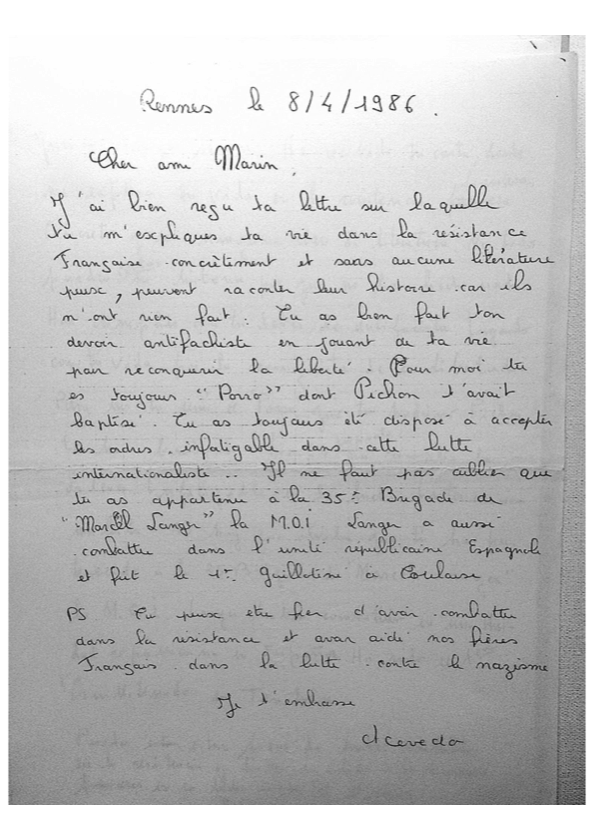 Rennes le 8/4/1986.
Cher ami Marin,
J'ai bien reçu ta lettre sur laquelle
tu m'expliques ta vie dans la résistance
Française concrètement et sans aucune litérature
peux, peuvent raconter leur histoire car ils
n'ont rien fait. Tu as bien fait ton
devoir antifachiste en jouant de ta vie
pair reconquerir la liberté. Pour moi tu
es toujours "Porro" dont Pichon t'avait
baptisé. Tu as toujours été disposé à accepter
les ordres, infatigable dans cette lutte
internationaliste.. Il ne faut pas oublier que
tu as appartenu à la 35e Brigade de
"Marcel Langer" la M.O.I Langer a aussi
combattu dans l'unité républicaine Espagnole
et fut le 1er guillotiné a Toulouse
PS Tu peux etre fier d'avoir combattu
dans la resistance et avoir aidé nos frères
Français dans la lutte contre le nazisme
Je t'embrasse
Acevedo